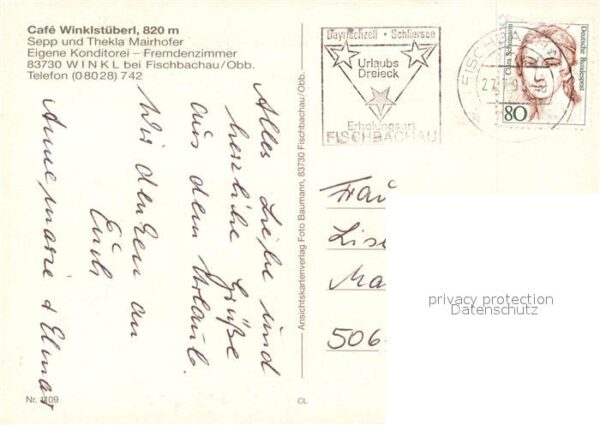 Café Winklstüberl, 820 m
Sepp und Thekla Mairhofer
Eigene Konditorei – Fremdenzimmer
83730 WINKL bei Fischbachau/Obb.
Telefon (08028) 742
Alles Liebe und
herzliche Grüße
aus dem Urlaub.
Wir denken an
Euch
Annemarie & Elmar
Nr. 1109
CL
Ansichtskartenverlag Foto Baumann, 83730 Fischbachau/Obb.
Bayrischzell · Schliersee
Urlaubs
Dreieck
Erholungsort
FISCHBACHAU
Clara Schumann
Deutsche Bundespost
80
Frau
506
privacy protection
Datenschutz